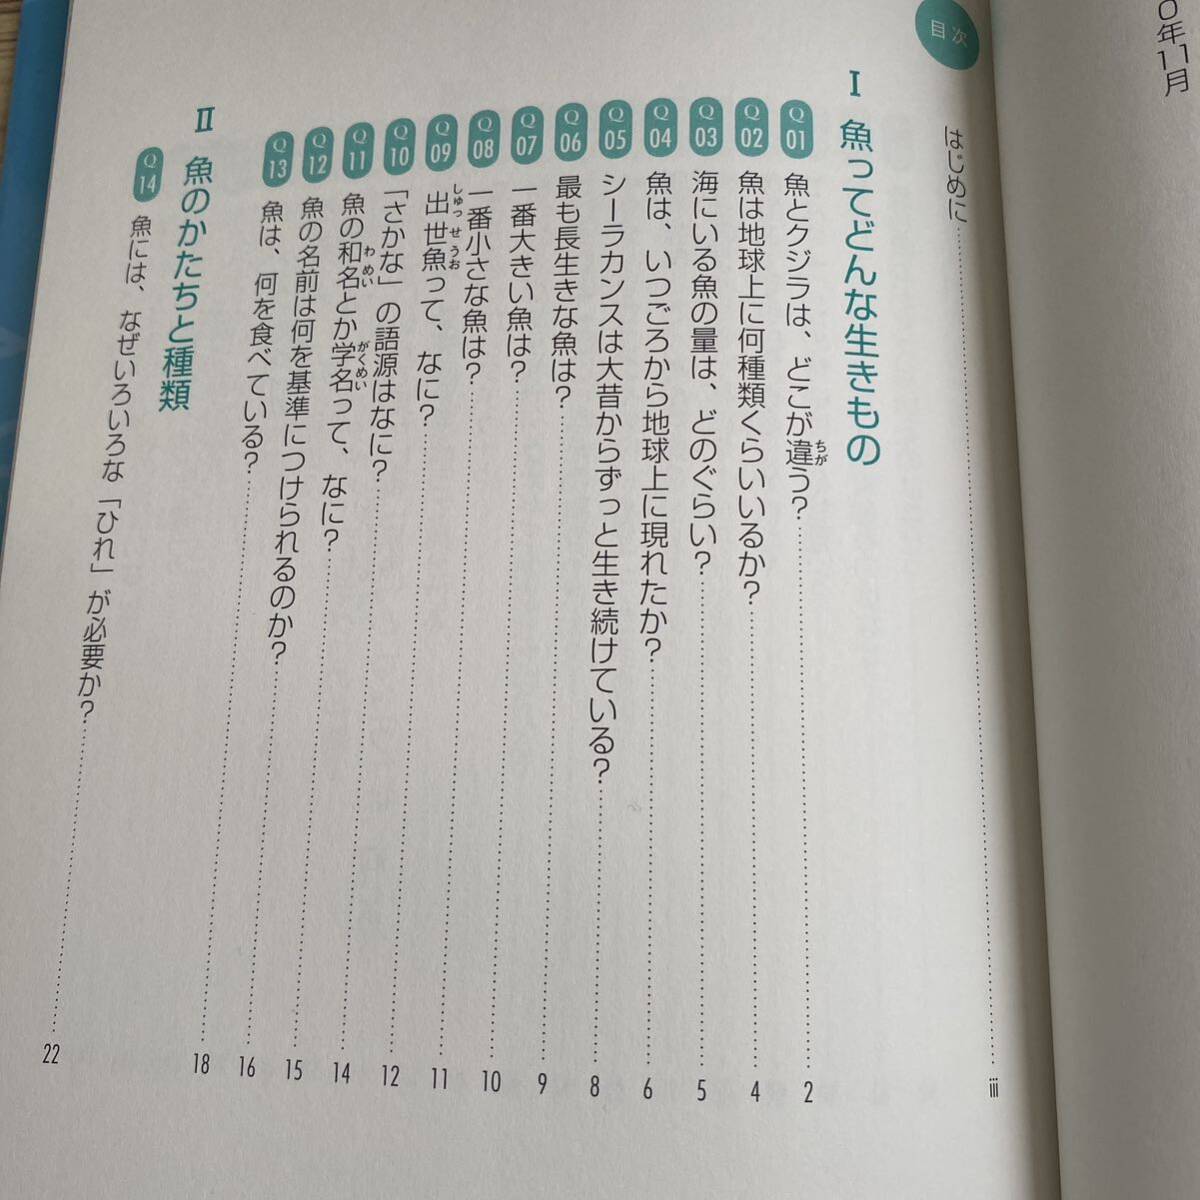 0年11月
目次
はじめに……iii
Ⅰ 魚ってどんな生きもの
Q01 魚とクジラは、どこが違う?……2
Q02 魚は地球上に何種類くらいいるか?……4
Q03 海にいる魚の量は、どのぐらい?……5
Q04 魚は、いつごろから地球上に現れたか?……6
Q05 シーラカンスは大昔からずっと生き続けている?……8
Q06 最も長生きな魚は?……9
Q07 一番大きい魚は?……10
Q08 一番小さな魚は?……11
Q09 出世魚って、なに?……12
Q10 「さかな」の語源はなに?……14
Q11 魚の和名とか学名って、なに?……15
Q12 魚の名前は何を基準につけられるのか?……16
Q13 魚は、何を食べている?……18
Ⅱ 魚のかたちと種類
Q14 魚には、なぜいろいろな「ひれ」が必要か?……22